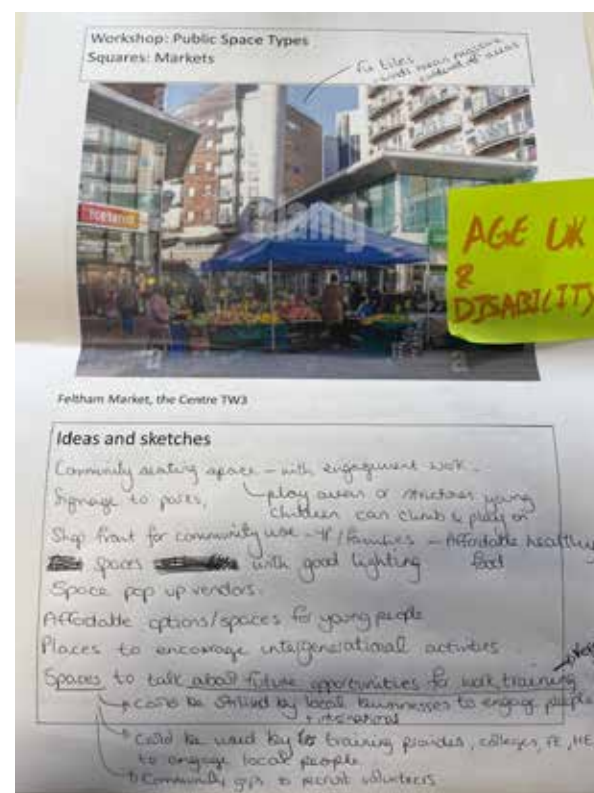 Workshop: Public Space Types
Squares: Markets
Iceland
alamy
a
AGE UK
&
DISABILITY
Feltham Market, the Centre TW3
Ideas and sketches
Community seating space - with engagement work.
Signage to parks,
play areas or structures young
children can climb & play on
Shop front for community use - YP/Families - Affordable healthy
food
spaces with good lighting
Space pop up vendors.
Affordable options/spaces for young people
Places to encourage intergenerational activities
Spaces to talk about future opportunities for work, training
could be utilised by local businesses to engage people
+ international
Could be used by training providers, colleges, FE, HE
to engage local people
Community grps to recruit volunteers